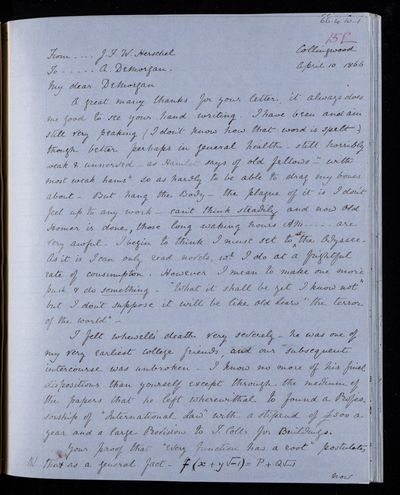 From .... J.F.W. Herschel Collingwood
To ..... A. DeMorgan. April 10 1866
My dear DeMorgan
A great many thanks for your letter. it always does
me good to see your hand writing. I have been and am
still very peaking (I don't know how that word is spelt -)
though better perhaps in general health - still horribly
weak & unnerved - as Hamlet says of old fellows - "with
most weak hams" so as hardly to be able to drag my bones
about - But hang the Body - the plague of it is I don't
feel up to any work - can't think steadily and now old
Homer is done, those long waking hours AM .... are
very awful. I begin to think I must set to at the Odyssee.
As it is I can only read novels, wch I do at a frightful
rate of consumption. However I mean to make one more
push & do something - "What it shall be yet I know not"
but I don't suppose it will be like old Lear's "the terror
of the world" -
I felt Whewell's death very severely - he was one of
my very earliest college friends and our subsequent
intercourse was unbroken - I know no more of his final
dispositions than yourself except through the medium of
the papers that he left wherewithal to found a Profes-
sorship of "International Law" with a stipend of £500 a
year and a large Provision to T. Coll: for Buildings.
Your proof that "every function has a root" postulates
that as a general fact - f(x+y√-1) = P+Q√-1
now